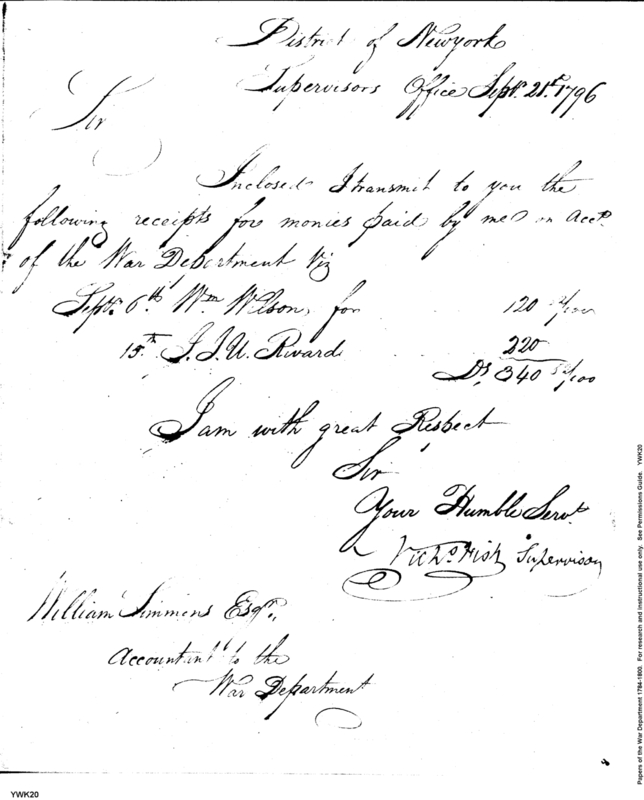 District of Newyork
Supervisors Office Sepr. 21st. 1796
Sir
Inclosed I transmit to you the
following receipts for monies paid by me on Acct.
of the War Department Viz
Septr. 6th. Wm Wilson, for 120 /100
15th. J. J. U. Rivardi 220
Ds. 340 /100
I am with great Respect
Sir
Your Humble Servt.
Nichs. Fish Supervisor
William Simmons Esqr.,
Accountant to the
War Department
Papers of the War Department 1784-1800. For research and instructional use only. See Permissions Guide. YWK20
YWK20